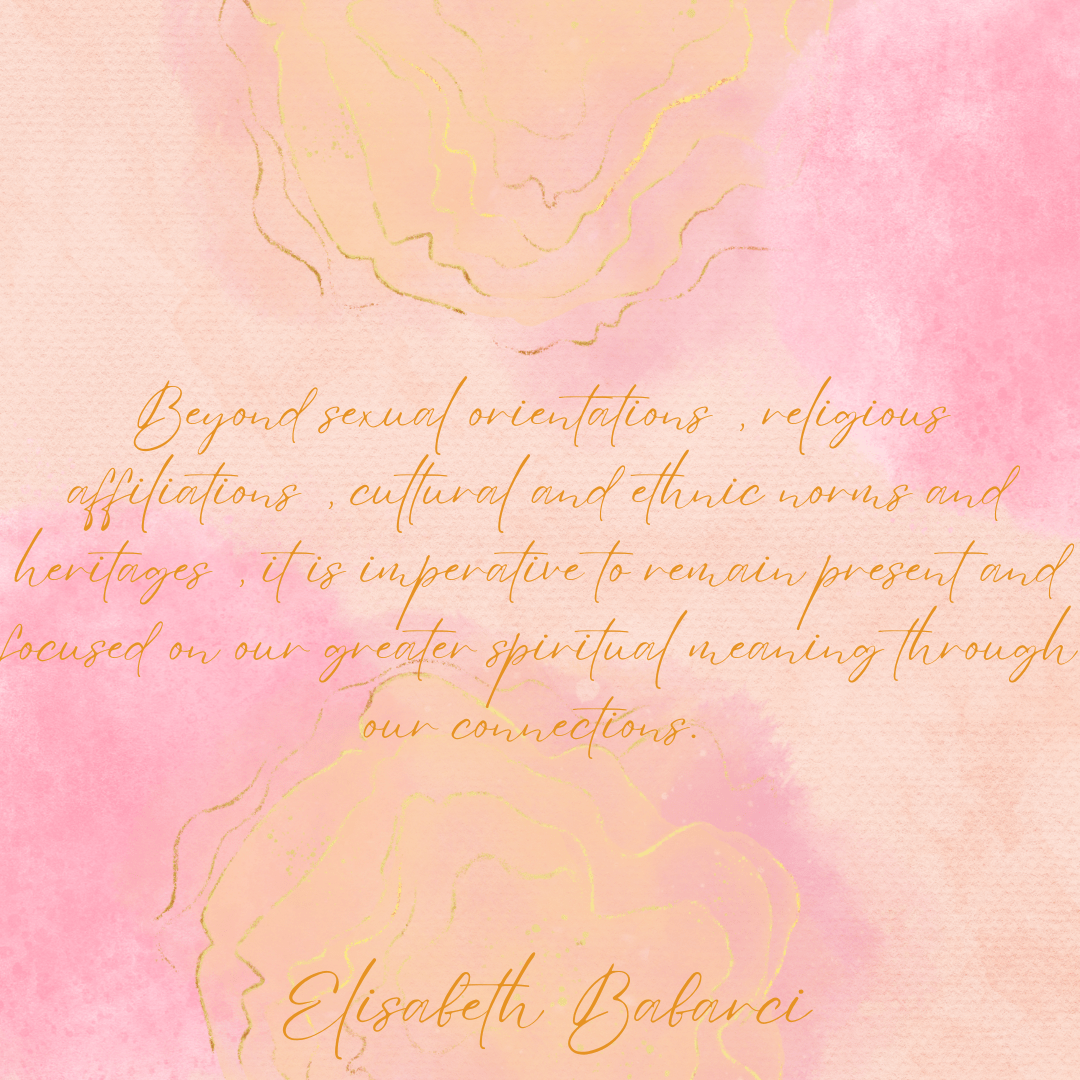 Beyond sexual orientations , religious
affiliations , cultural and ethnic norms and
heritages , it is imperative to remain present and
focused on our greater spiritual meaning through
our connections.
Elisabeth Babarci